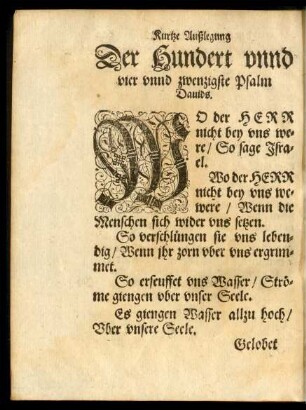 Kurtze Außlegung
Der Hundert vnnd
vier vnnd zwenzigste Psalm
Dauids.
WO der HERR
nicht bey vns we-
re / So sage Jsra-
el.
Wo der HERR
nicht bey vns we-
were / Wenn die
Menschen sich wider vns setzen.
So verschlüngen sie vns leben-
dig / Wenn jhr zorn vber vns ergrim-
met.
So erseuffet vns Wasser / Strö-
me giengen vber vnser Seele.
Es giengen Wasser allzu hoch /
Vber vnsere Seele.
Gelobet